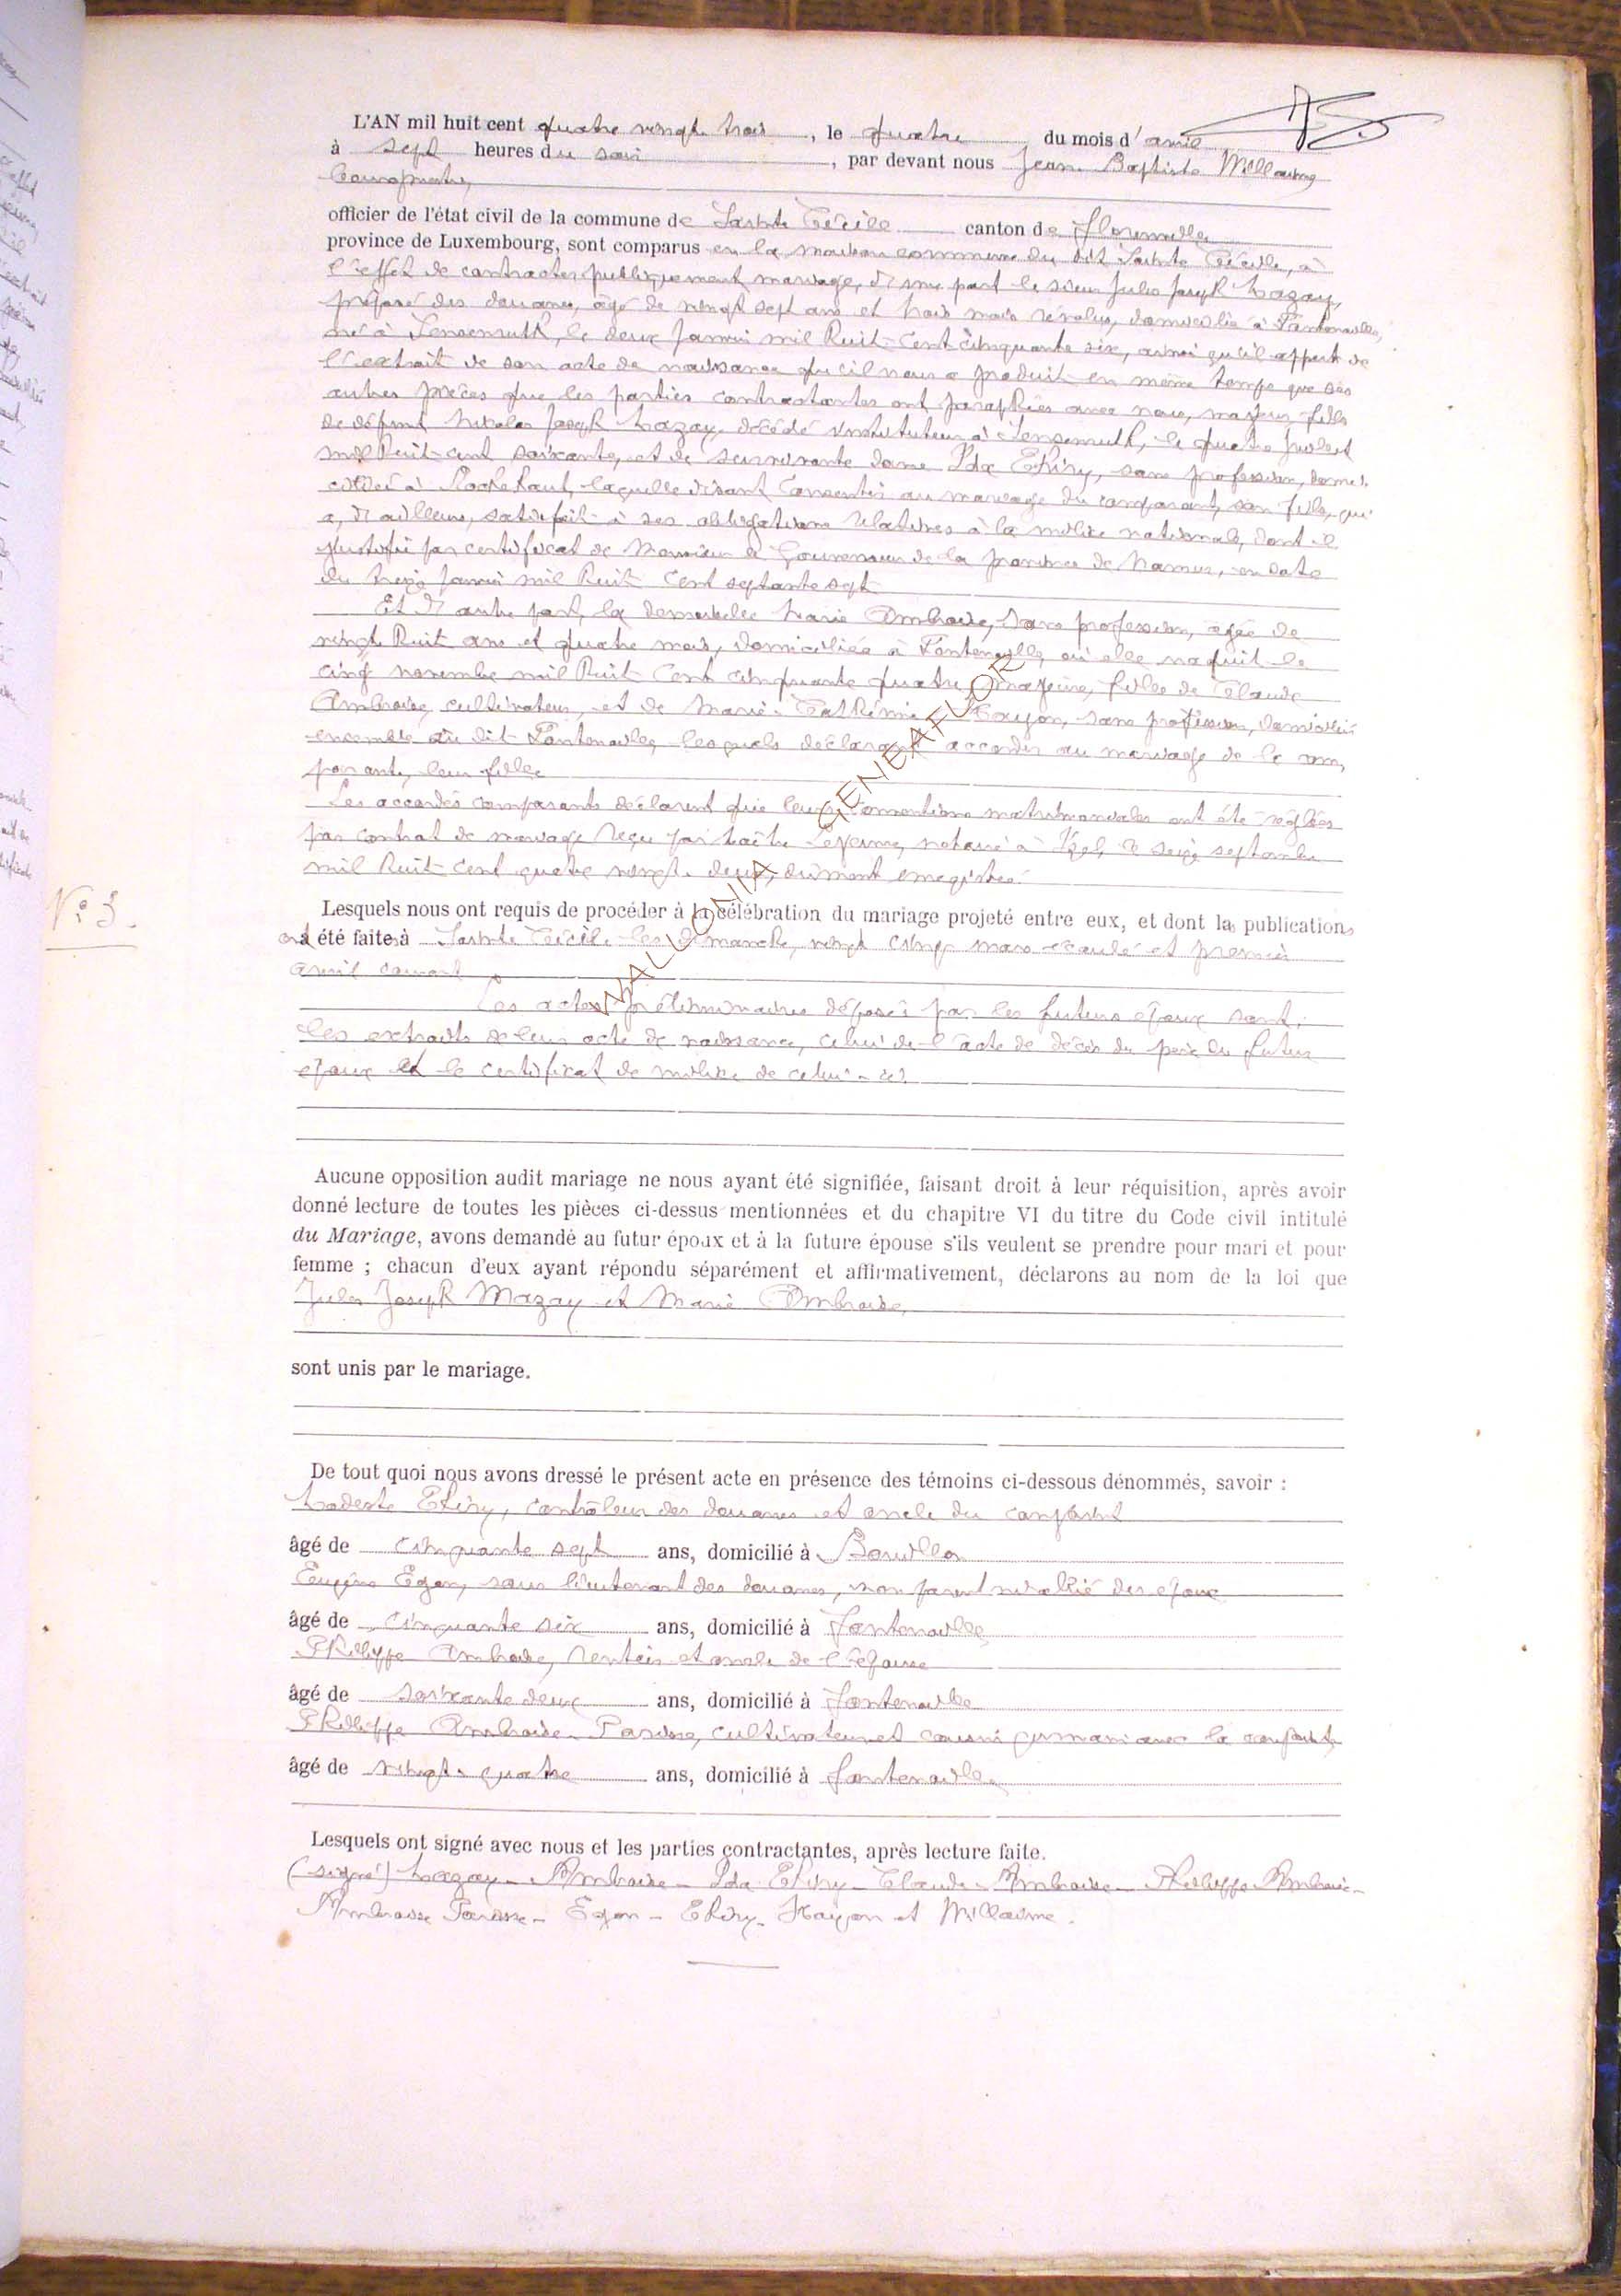 L'AN mil huit cent quatre vingt trois, le quatre du mois d'avril
à sept heures du soir, par devant nous Jean Baptiste Willaime
Bourgmestre,
officier de l'état civil de la commune de Sainte Cécile canton de Florenville
province de Luxembourg, sont comparus en la maison commune du dit Sainte Cécile, à
l'effet de contracter publiquement mariage, d'une part le sieur Jules Joseph Mazay,
préposé des douanes, âgé de vingt sept ans et trois mois révolus, domicilié à Fontenoille,
né à Sensenruth, le deux janvier mil huit cent cinquante six, ainsi qu'il appert de
l'extrait de son acte de naissance qu'il nous a produit en même temps que les
autres pièces que les parties contractantes ont paraphées avec nous, majeur, fils
de défunt Nicolas Joseph Mazay, décédé instituteur à Sensenruth, le quatre juillet
mil huit cent soixante, et de survivante dame Ida Thiry, sans profession, domi-
ciliée à Rochehaut, laquelle disant consentir au mariage du comparant, son fils, qui
a, d'ailleurs, satisfait à ses obligations relatives à la milice nationale, dont il
justifie par certificat de Monsieur le Gouverneur de la province de Namur, en date
du treize janvier mil huit cent septante sept
Et d'autre part, la demoiselle Marie Ambroise, sans profession, âgée de
vingt huit ans et quatre mois, domiciliée à Fontenoille, où elle naquit le
cinq novembre mil huit cent cinquante quatre, majeure, fille de Claude
Ambroise, cultivateur, et de Marie Cathérine Hayon, sans profession, domiciliés
ensemble au dit Fontenoille, lesquels déclarent accorder au mariage de la com,
parante, leur fille
Les accordés comparants déclarent que leurs conventions matrimoniales ont été réglées
par contrat de mariage reçu par Maître Lejeune, notaire à Izel, le seize septembre
mil huit cent quatre vingt deux, dûment enregistré
WALLONIA GENEAFLOR
N° 3.
Lesquels nous ont requis de procéder à la célébration du mariage projeté entre eux, et dont las publications
ont été faites à Sainte Cécile les dimanche, vingt cinq mars écoulé et premier
avril courant
Les actes préliminaires déposés par les futurs époux sont:
les extraits de leur acte de naissance, celui de l'acte de décès du père du futur
époux et le certificat de milice de celui-ci
Aucune opposition audit mariage ne nous ayant été signifiée, faisant droit à leur réquisition, après avoir
donné lecture de toutes les pièces ci-dessus mentionnées et du chapitre VI du titre du Code civil intitulé
du Mariage, avons demandé au futur époux et à la future épouse s'ils veulent se prendre pour mari et pour
femme ; chacun d'eux ayant répondu séparément et affirmativement, déclarons au nom de la loi que
Jules Joseph Mazay et Marie Ambroise,
sont unis par le mariage.
De tout quoi nous avons dressé le présent acte en présence des témoins ci-dessous dénommés, savoir :
Modeste Thiry, contrôleur des douanes et oncle du comparant
âgé de cinquante sept ans, domicilié à Bouillon
Eugène Egon, sous lieutenant des douanes, non parent ni allié des époux
âgé de cinquante six ans, domicilié à Fontenoille
Philippe Ambroise, rentier et oncle de l'épouse
âgé de soixante deux ans, domicilié à Fontenoille
Philippe Ambroise-Parisse, cultivateur et cousin germain avec la comparante
âgé de vingt-quatre ans, domicilié à Fontenoille
Lesquels ont signé avec nous et les parties contractantes, après lecture faite.
(signé) Mazay - Ambroise - Ida Thiry - Claude Ambroise - Philippe Ambroise -
Ambroise Parisse - Egon - Thiry - Hayon et Willaime.